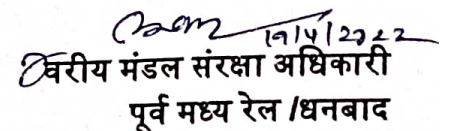 19/4/2022
वरीय मंडल संरक्षा अधिकारी
पूर्व मध्य रेल /धनबाद